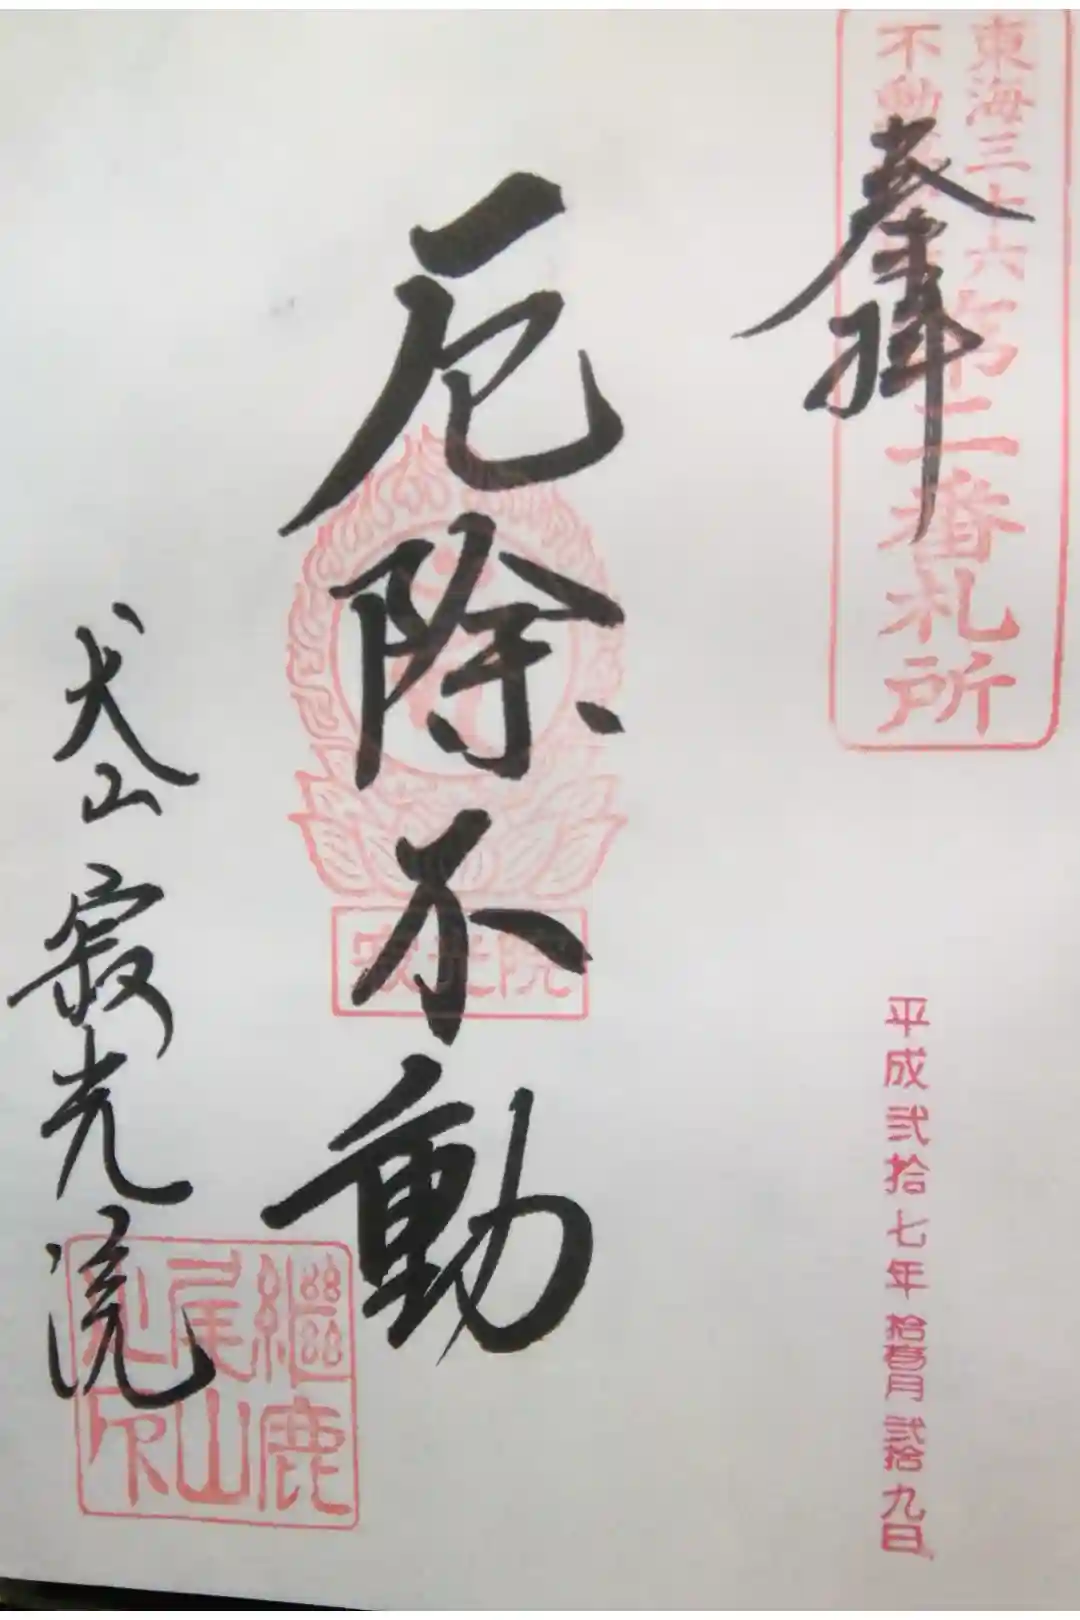 東海三十六
不動
第二番札所
奉拝
平成弐拾七年拾壱月弐拾九日
厄除不動
寂光院
犬山寂光院
継鹿
尾山
印